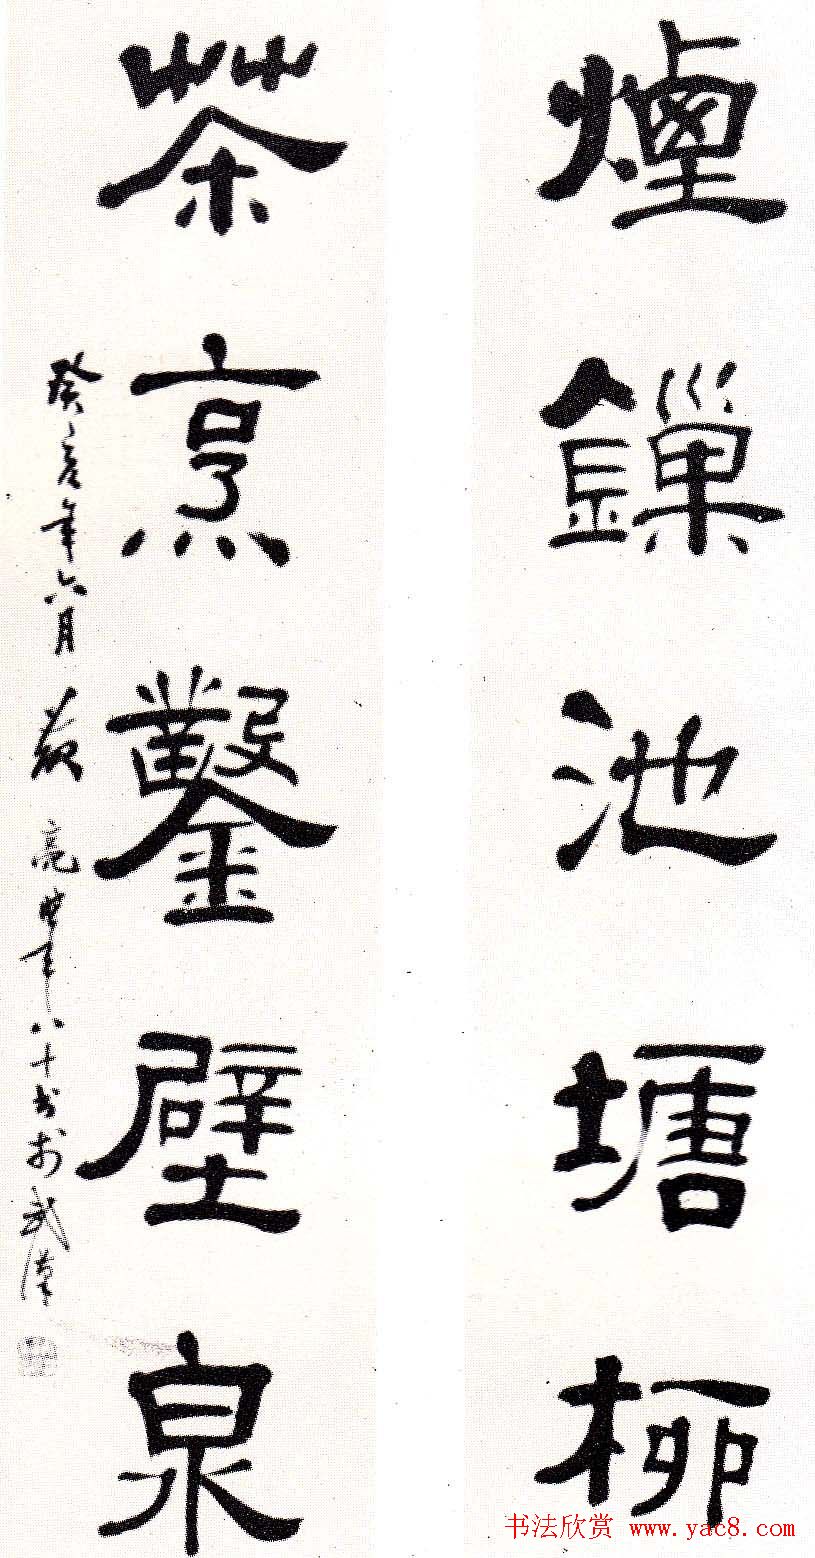 煙鏁池塘柳
茶烹鑿壁泉
癸亥年六月黄亮时年八十书於武漢
书法欣赏 www.yac8.com